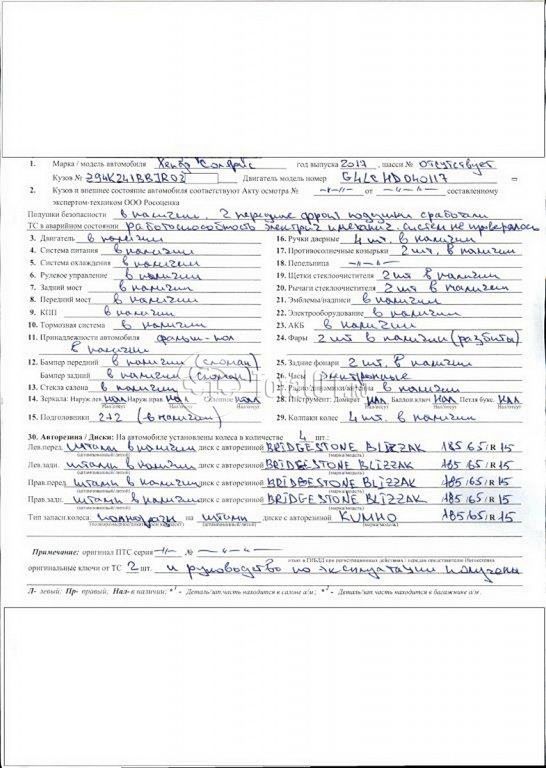 1. Марка / модель автомобиля Хендэ Солярис год выпуска 2017, шасси № отсутствует
Кузов № Z94K241BBJR02 Двигатель модель номер G4LC HD040117
2. Кузов и внешнее состояние автомобиля соответствуют Акту осмотра № -//-//- от -//-//- составленному
экспертом-техником ООО Росоценка
Подушки безопасности в наличии, 2 передние фронт подушки сработали
ТС в аварийном состоянии работоспособность электрич и механич. систем не проверялась
3. Двигатель в наличии 16. Ручки дверные 4 шт. в наличии
4. Система питания в наличии 17. Противосолнечные козырьки 2 шт. в наличии
5. Система охлаждения в наличии 18. Пепельница -//-//-
6. Рулевое управление в наличии 19. Щетки стеклоочистителя 2 шт в наличии
7. Задний мост в наличии 20. Рычаги стеклоочистителя 2 шт в наличии
8. Передний мост в наличии 21. Эмблемы/надписи в наличии
9. КПП в наличии 22. Электрооборудование в наличии
10. Тормозная система в наличии 23. АКБ в наличии
11. Принадлежности автомобиля фальш-пол 24. Фары 2 шт в наличии (разбиты)
в наличии
12. Бампер передний в наличии (сломан) 25. Задние фонари 2 шт. в наличии
Бампер задний в наличии (сломан) 26. Часы электронные
13. Стекла салона в наличии 27. Радио/динамики/антенна в наличии
14. Зеркала: Наружн.лев нал Наруж.прав. нал Салонное нал 28. Инструмент: Домкрат нал Баллон.ключ нал Петля букс. нал
Нал/отсут Нал/отсут Нал/отсут Нал/отсут Нал/отсут Нал/отсут
15. Подголовники 2+2 (в наличии) 29. Колпаки колес 4 шт. в наличии
30. Авторезина / Диски: На автомобиле установлены колеса в количестве 4 шт.:
Лев.перед. штамп в наличии диск с авторезиной BRIDGESTONE BLIZZAK 185/65/R15
(штампованный/литой) (марка/модель)
Лев.задн. штамп в наличии диск с авторезиной BRIDGESTONE BLIZZAK 185/65/R15
(штампованный/литой) (марка/модель)
Прав.перед. штамп в наличии диск с авторезиной BRIDGESTONE BLIZZAK 185/65/R15
(штампованный/литой) (марка/модель)
Прав.задн. штамп в наличии диск с авторезиной BRIDGESTONE BLIZZAK 185/65/R15
(штампованный/литой) (марка/модель)
Тип запасн.колеса полноразм на штамп диске с авторезиной KUMHO 185/65/R15
(штампованный/литой) (марка/модель)
Примечание: оригинал ПТС серия -//- № -//-//-
оригинальные ключи от ТС 2 шт. и руководство по эксплуатации получены
Л- левый: Пр- правый; Нал- в наличии; *¹ - Деталь/зап.часть находится в салоне а/м; *² - Деталь/зап.часть находится в багажнике а/м.